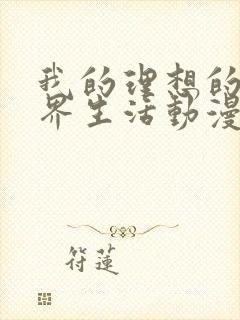 我的理想的
界生活動漫
符蓮